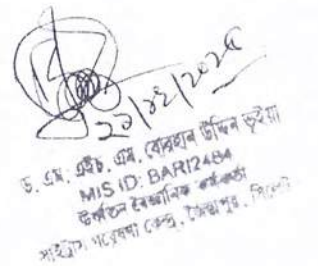 ২১/১২/২০২৫
ড. এম. এইচ. এম. বোরহান উদ্দিন ভূইয়া
MIS ID: BARI2484
উর্ধ্বতন বৈজ্ঞানিক কর্মকর্তা
সাইট্রাস গবেষণা কেন্দ্র, জৈন্তাপুর, সিলেট